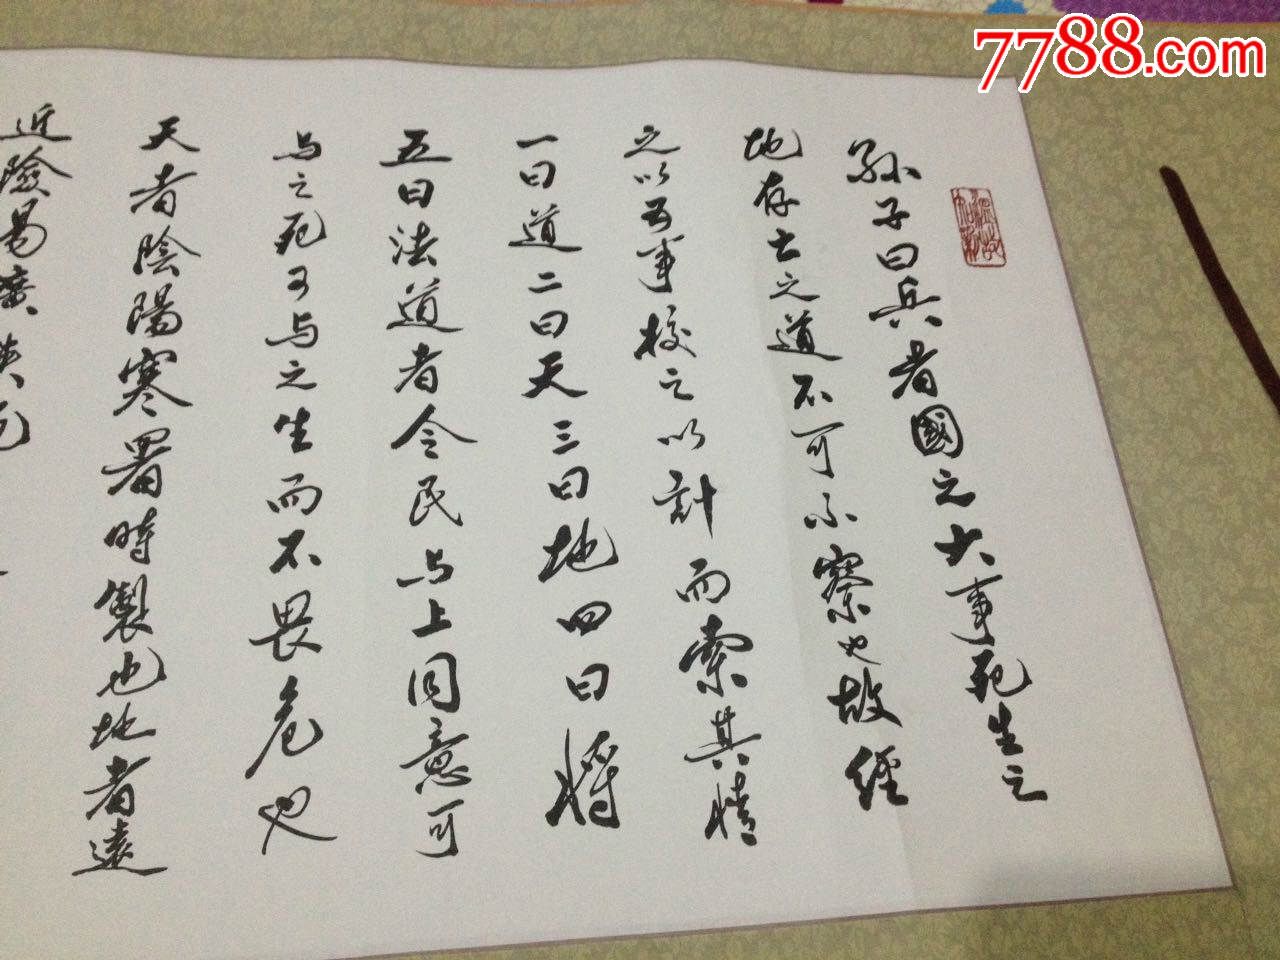 7788.com
孫子曰兵者國之大事死生之
地存亡之道不可不察也故經
之以五事校之以計而索其情
一曰道二曰天三曰地四曰將
五曰法道者令民与上同意可
与之死可与之生而不畏危也
天者陰陽寒署時製也地者遠
近險易廣